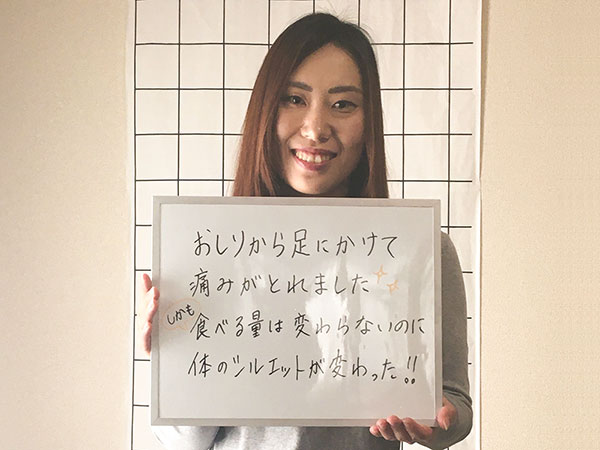 おしりから足にかけて
痛みがとれました
しかも
食べる量は変わらないのに
体のシルエットが変わった!!